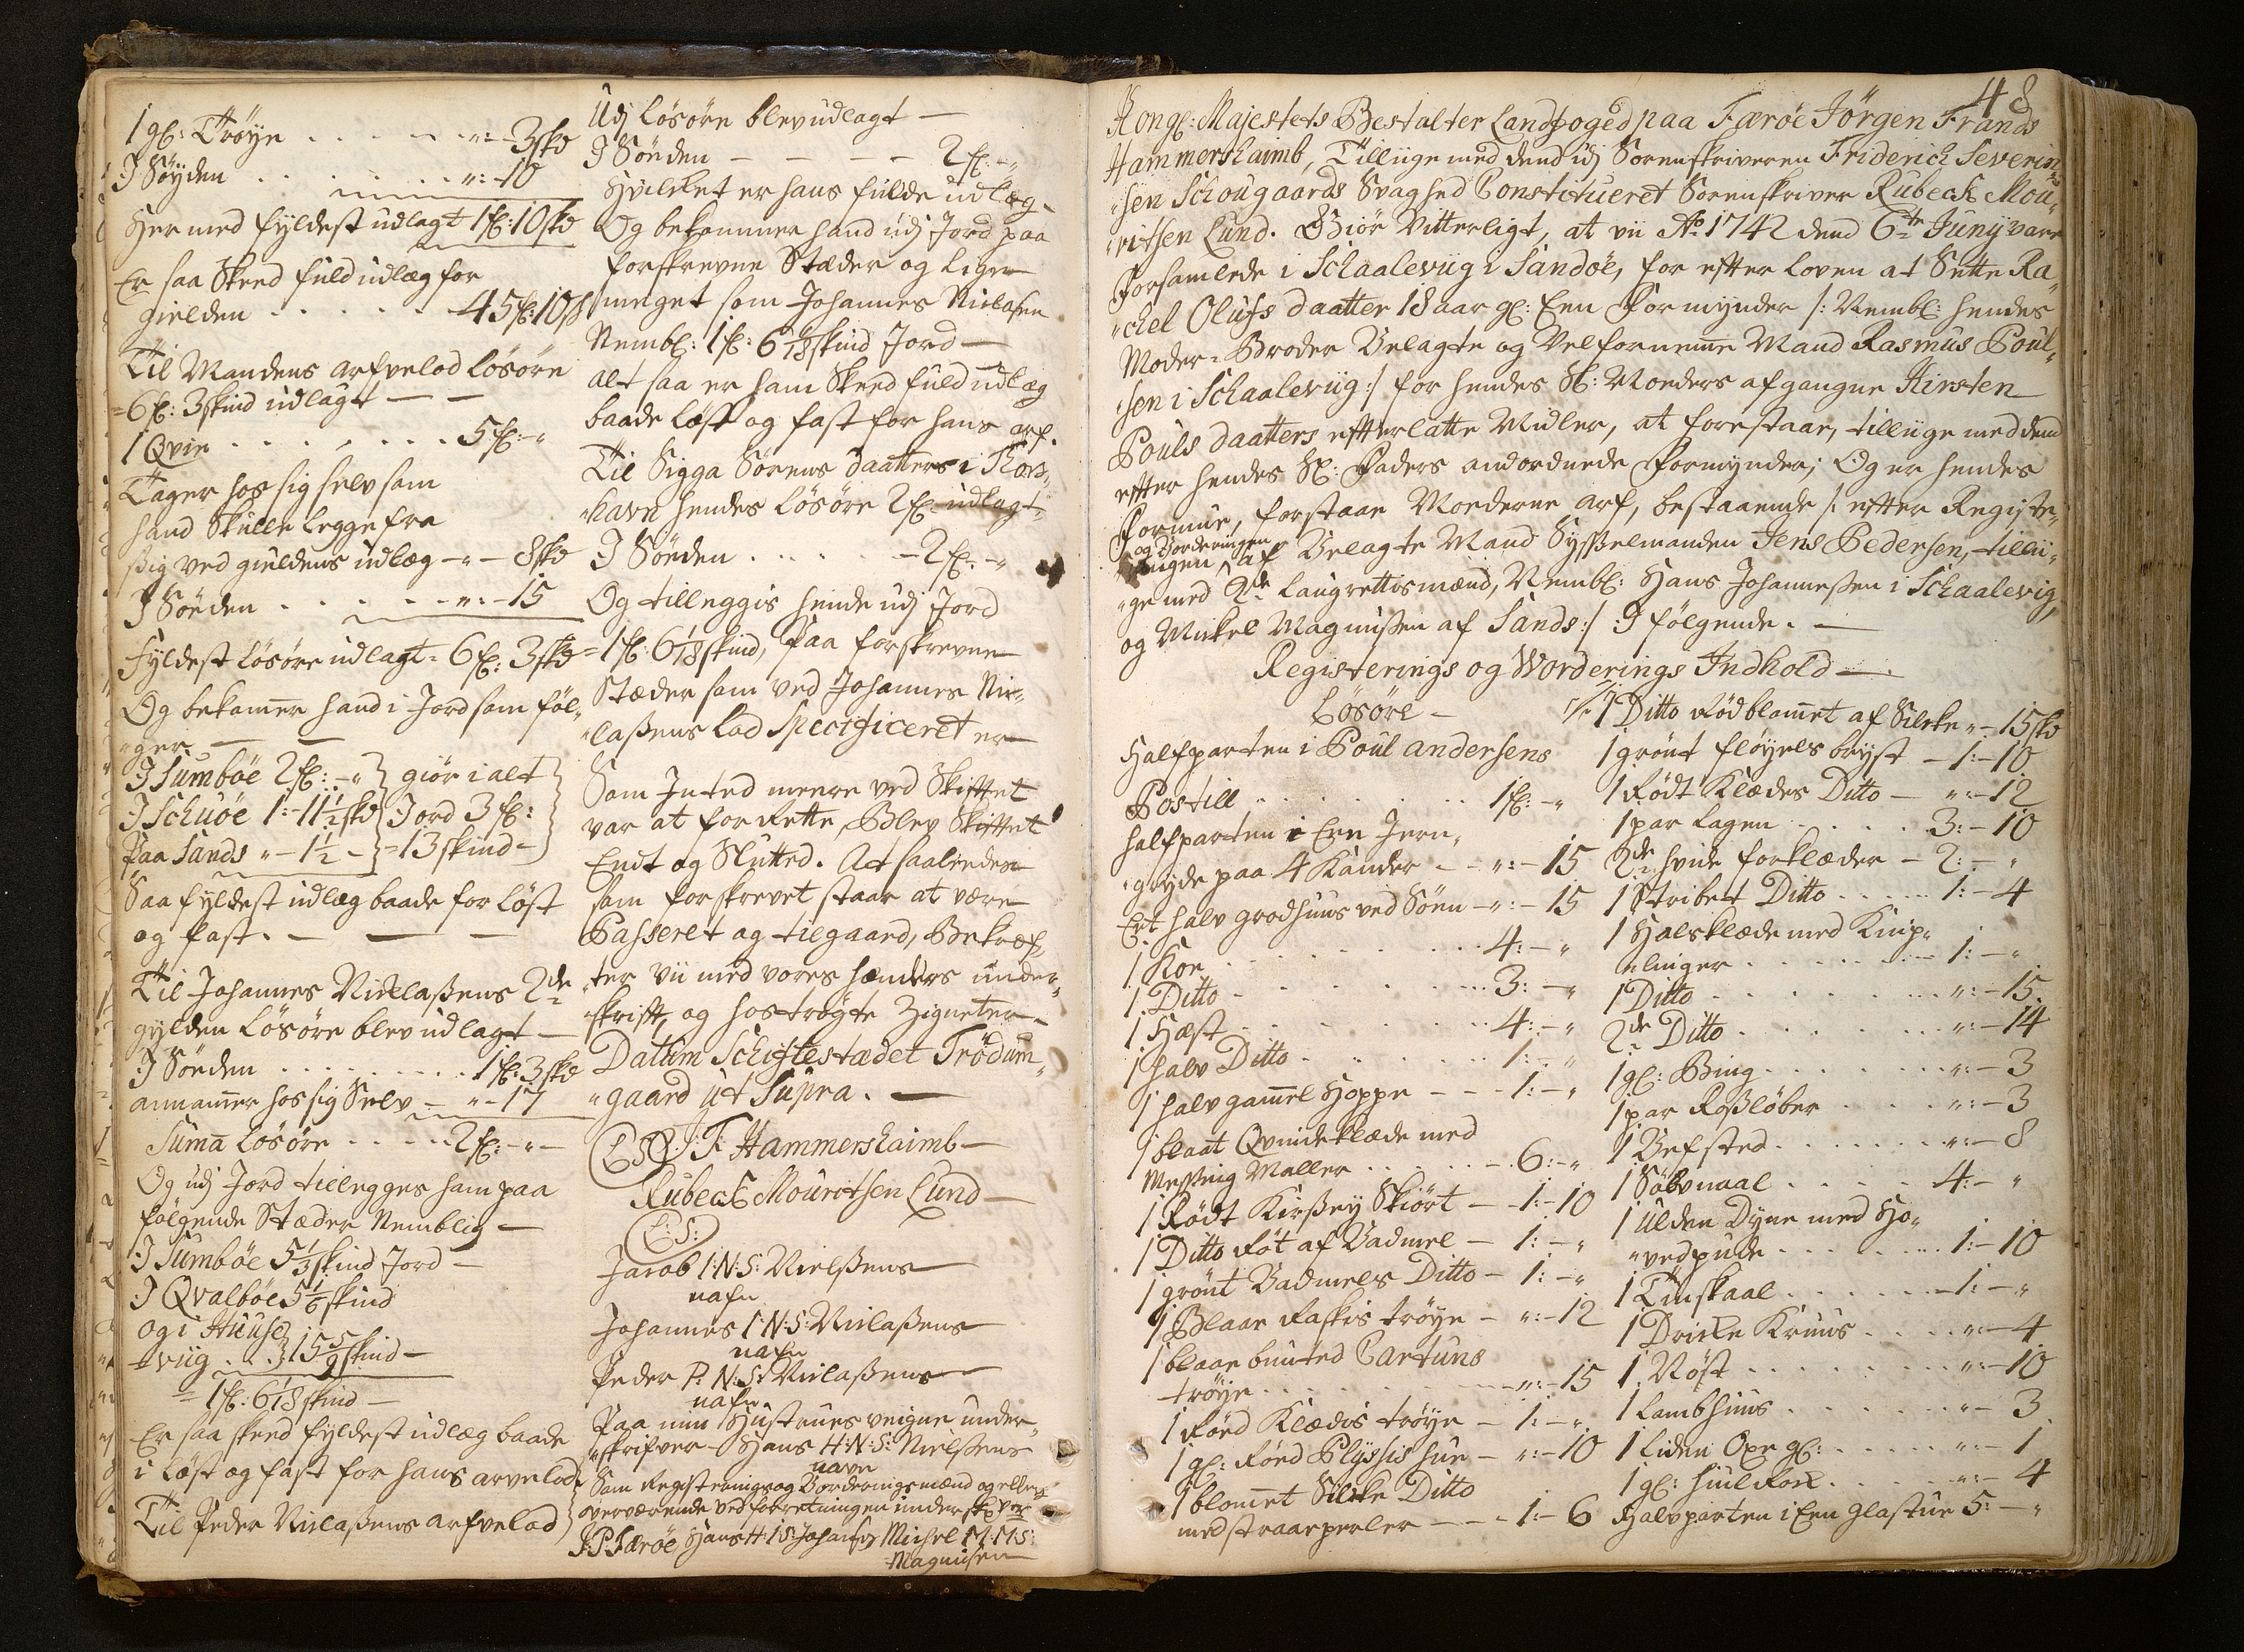 1 gl: Trøye . . . . . ":-3skd
I Søyden . . . . . . ":-10
Hermed fyldest udlagt 1fl:10skd
Er saa Skeed fuld udlæg for
gielden . . . . . . 45fl:10s
Til Mandens arfvelod løsøre
=6fl: 3skind udlagt — —
1 Qvie . . . . . . . . 5fl:-"
Tager hos sig selv som
hand Skulle legge fra
sig ved gieldens udlæg -"- 8skd
I Søeden . . . . . -":-15
Fyldest løsøre udlagt= 6fl: 3skd
Og bekom̅er hand i Jord som føl,,
,,ger — —
I Sumbøe 2fl:-" } giør i alt
I Schuøe 1:-11½skd } Jord 3fl:
Paa Sands "-1½- } =13skind-
Saa fyldest udlæg baade for løst
og fast. — — —
Til Johannes Nicklaßens 2de
gylden løsøre blev udlagt —
I Søeden . . . . . . . . 1fl:3skd
annam̅er hos sig Selv — "-17
Suma̅ løsøre . . . . 2fl:-"-
Og udj Jord tillegges ham paa
følgende Stæder Nemblig —
I Sumbøe 5⅓skind Jord —
I Qvalbøe 5⅙skind
og i Huuse
,,viig . . } 15 5/9skind —
=1fl: 6 1/18skind —
Er saa skeed fyldest udlæg baade
i løst og fast for hans arvelod
Til Peder Niclaßens arfvelod
Udj løsøre blev udlagt —
I Søeden — — — — 2fl:-"
Hvilket er hans fulde udlæg-
Og bekommer hand udj Jord paa
forskrevne Stæder og lige
meget som Johannes Niclasen
Nembl: 1fl: 6 1/18skind Jord —
alt saa er ham Skeed fuld udlæg
baade løst og fast for hans arf.
Til Sigga Sørens daatter i Thors,,
,,havn hendes løsøre 2fl: udlagt
I Søeden . . . . . -2fl:-"
Og tilleggis hende udj Jord
=1fl: 6 1/18skind, paa forskrevne
Stæder som ved Johannes Nic,,
,,laßens Lod Specificeret er
Som Inted meere ved Skiftet
var at forRette, Blev Skiftet
Endt og Slutted. At saaleedes
som forskrevet staar at være
Passeret og tilgaaed, Bekræf,,
,,ter vii med vores hænders under,,
,,skrift, og hostrøgte Zigneter.
Datum Schiftestædet Trødum,,
,,gaard ut Supra. —
(L:S:) J: F: Hammershaimb —
Rubeck Mouritsen Lund —
(L:S:)
Jacob I:N:S: Nielßens
nafn
Johannes I:N:S: Niclaßens
nafn
Peder P:N:S: Niclaßens
nafn
Paa min Hustrues veigne under,,
,,skrifver Hans H:N:S: Nielßens
navn
Som Registerings og Vorderings mænd og ellers
overværende ved forretningen underskr:
J P Færøe Hans H:I:S: Johansen Michel M:M:S:
Magnusen
48
Kongl: Majestets Bestalter Landfoged paa Færøe Jørgen Frands
Hammershaimb, Tilliige med dend idj Sorenskriveren Friderich Severin,,
,,sen Schougaards Svaghed Constitueret Sorenskriver Rubeck Mou,,
,,ritsen Lund. Giør Vitterligt, at vii Ao 1742 dend 6te Junij vare
forsamlede i Schaaleviig i Sandøe, for efter loven at Sette Ra,,
,,chel Olufs daatter 18 aar gl: Een Formynder /: Nembl: hendes
Moder-Broder Velagte og Velfornem̅e Mand Rasmus Poul,,
,,sen i Schaaleviig :/ for hendes Sl: Moeders afgangne Kirsten
Pouls daatters efterlatte Midler, at forestaae, tilliige med dend
efter hendes Sl: Faders andordnede Formynder; Og er hendes
Formue, forstaae Moederne arf, bestaaende /: efter Registe,,
og Vorderingen
,,ringen, af Velagte Mand Sysselmanden Jens Pedersen, tillii,,
,,ge med 2de laugrettismænd, Nembl: Hans Johanneßen i Schaalevig,
og Mickel Magnußen af Sands :/ I følgende. —
Registerings og Worderings Indhold —
Løsøre —
Halfparten i Poul andersens
Postill . . . . . . . . 1fl:-"
halfparten i Een Jern,,
,,gryde paa 4 Kander — ":-15
Et halv grodhuus ved Søen -":-15
1 Koe . . . . . . . . . 4:-"
1 Ditto . . . . . . . . 3:-"
1 Hæst . . . . . . . . 4:-"
1 halv Ditto . . . . . 1:-"
1 halv gam̅el Hoppe — — 1:-"
1 blaat Qvindeklæde med
Messing Maller . . . . . 6:-"
1 Rødt Kirßey Skiørt — 1:-10
1 Ditto Røt af Vadmel — 1:-"
1 grønt Vadmels Ditto — 1:-"
1 Blaae Raskis trøye — ":-12
1 blaae bunted Cartuns
trøye . . . . . . . . ":-15
1 Røed Klædis trøye — 1:-"
1 gl: Røed Plyssis hue — ":-10
1 blomet Silcke Ditto
med straaeperler — — 1:-6
1 Ditto Rødblom̅et af Silcke "-15skd
1 grønt fløyels bryst — 1:-10
1 Rødt Klædes Ditto — ":-12
1 par lagen . . . . . 3:-10
2de hvide forklæder — 2:-"
1 Stribet Ditto . . . . . 1:-4
1 Halsklæde med Knip,,
,,linger . . . . . . . 1:-"
1 Ditto . . . . . . . . ":-15
2de Ditto . . . . . . . ":-14
1 gl: Bing . . . . . . . ":-3
1 par Roßløber . . . . ":-3
1 Vefsted . . . . . . . ":-8
1 Sølvnaal . . . . . 4:-"
1 ulden Dyne med Ho,,
,,vedpude . . . . . . . 1:-10
1 Tinskaal . . . . . . -1:-"
1 Dricke Kruus . . . . ":-4
1 Røst . . . . . . . . ":-10
1 lambhuus . . . . . . "-3
1 liden Oxe gl: . . . . . ":-1
1 gl: huul Rok . . . . ":-4
Halvparten i Een glastue 5:-"